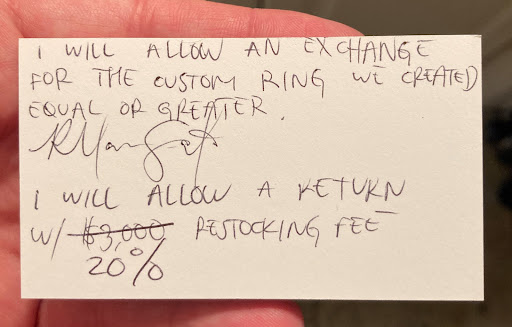 I WILL ALLOW AN EXCHANGE
FOR THE CUSTOM RING WE CREATED
EQUAL OR GREATER.
I WILL ALLOW A RETURN
W/ $3,000 RESTOCKING FEE
20%